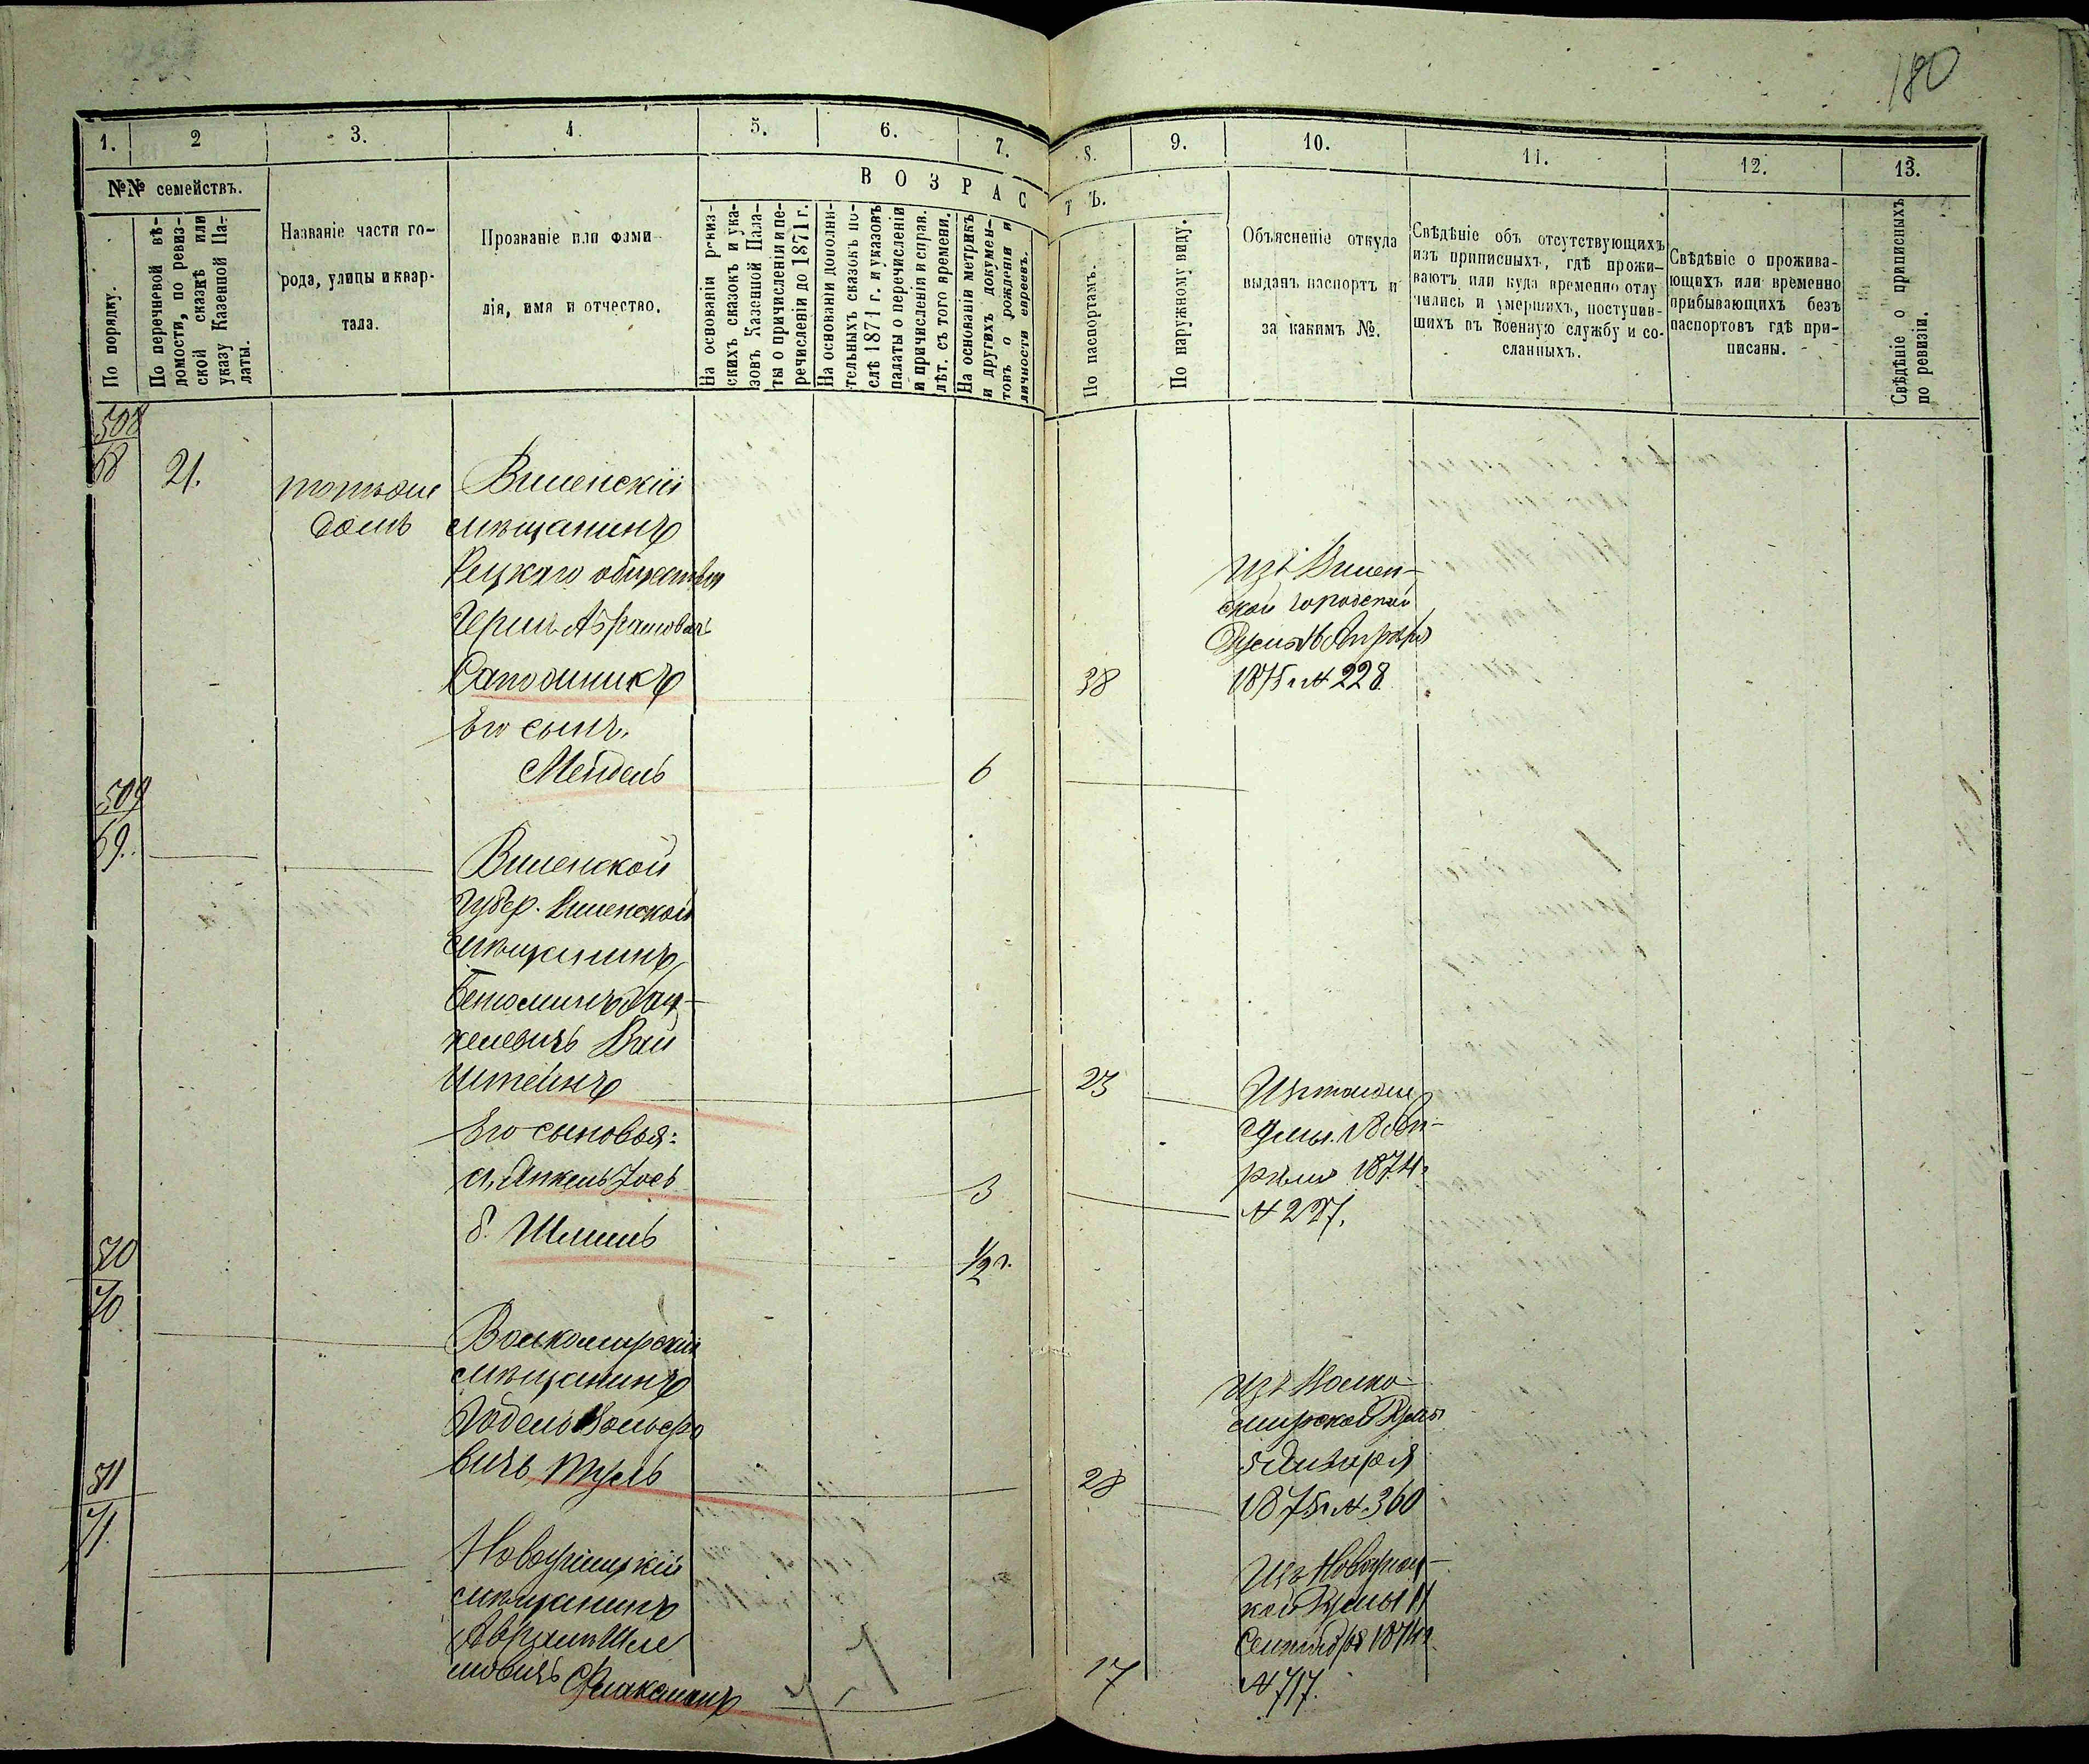 180
1.
2
3.
4.
5.
6.
7.
8.
9.
10.
11.
12.
13.
№№ семействъ.
По порядку.
По перечневой вѣ-
домости, по ревиз-
ской сказкѣ или
указу Казенной Па-
латы.
Названіе части го-
рода, улицы и квар-
тала.
Прозваніе или фами-
лія, имя и отчество.
ВОЗРАСТЪ.
На основаніи ревиз-
скихъ сказокъ и ука-
зовъ Казенной Пала-
ты о причисленіи и пе-
речисленіи до 1871 г.
На основаніи дополни-
тельныхъ сказокъ по-
слѣ 1871 г. и указовъ
палаты о перечисленіи
и причисленіи и справ.
лѣт. съ того времени.
На основаніи метрикъ
и другихъ докумен-
товъ о рожденіи и
личности евреевъ.
По паспортамъ.
По наружному виду.
Объясненіе откуда
выданъ паспортъ и
за какимъ №.
Свѣдѣніе объ отсутствующихъ
изъ приписныхъ, гдѣ прожи-
ваютъ или куда временно отлу
чились и умершихъ, поступив-
шихъ въ военную службу и со-
сланныхъ.
Свѣдѣніе о прожива-
ющихъ или временно
прибывающихъ безъ
паспортовъ гдѣ при-
писаны.
Свѣдѣніе о приписныхъ
по ревизіи.
508
68
21.
тотъ же
домъ
Виленскій
мѣщанинъ
общества
Абрамовичъ
Сапожникъ
38
Изъ Вилен-
ской городской
Думы 16 Апрѣля
1875 г № 228
Его сынъ
Мендель
6
509
69.
Виленской
Губер. Виленской
мѣщанинъ
Беньоминъ Хац-
келевичъ Вай
штейнъ
23
Изъ той же
Думы 18 Ап-
рѣля 1874 г
Его сыновья:
а, Янкель Іосъ
3
б.
1/2 г.
510
70
Волкомирскій
мѣщанинъ
Годель Вольфо
вичъ
28
Изъ Волко-
мирской Думы
5 Января
1875 г № 360
511
71.
мѣщанинъ
Абрамъ Шле
мовичъ
17
Думы 11
Сентября 1874 г
№ 717.